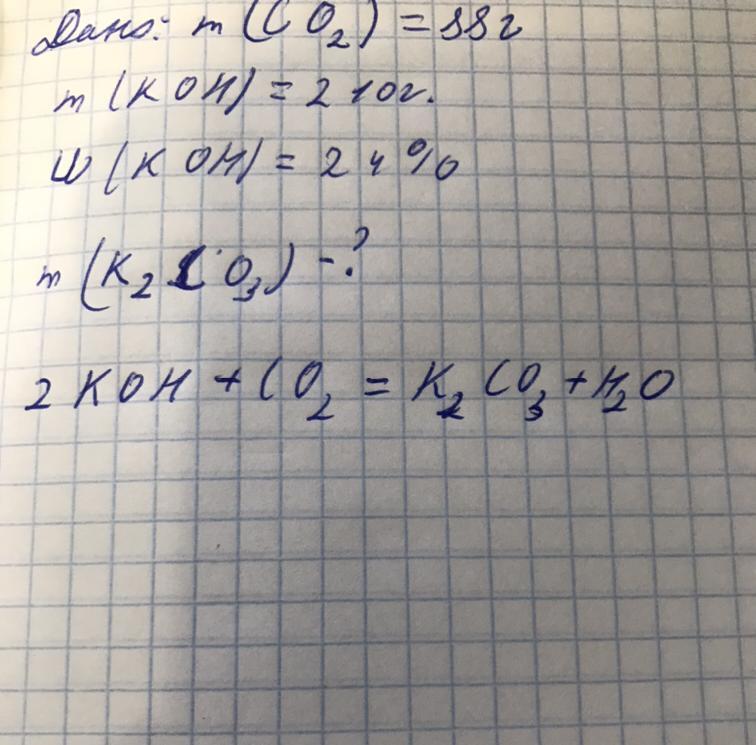 Дано: m (CO₂) = 88г
m (KOH) = 210г.
W (KOH) = 24%
m (K₂CO₃) - ?
2KOH + CO₂ = K₂CO₃ + H₂O